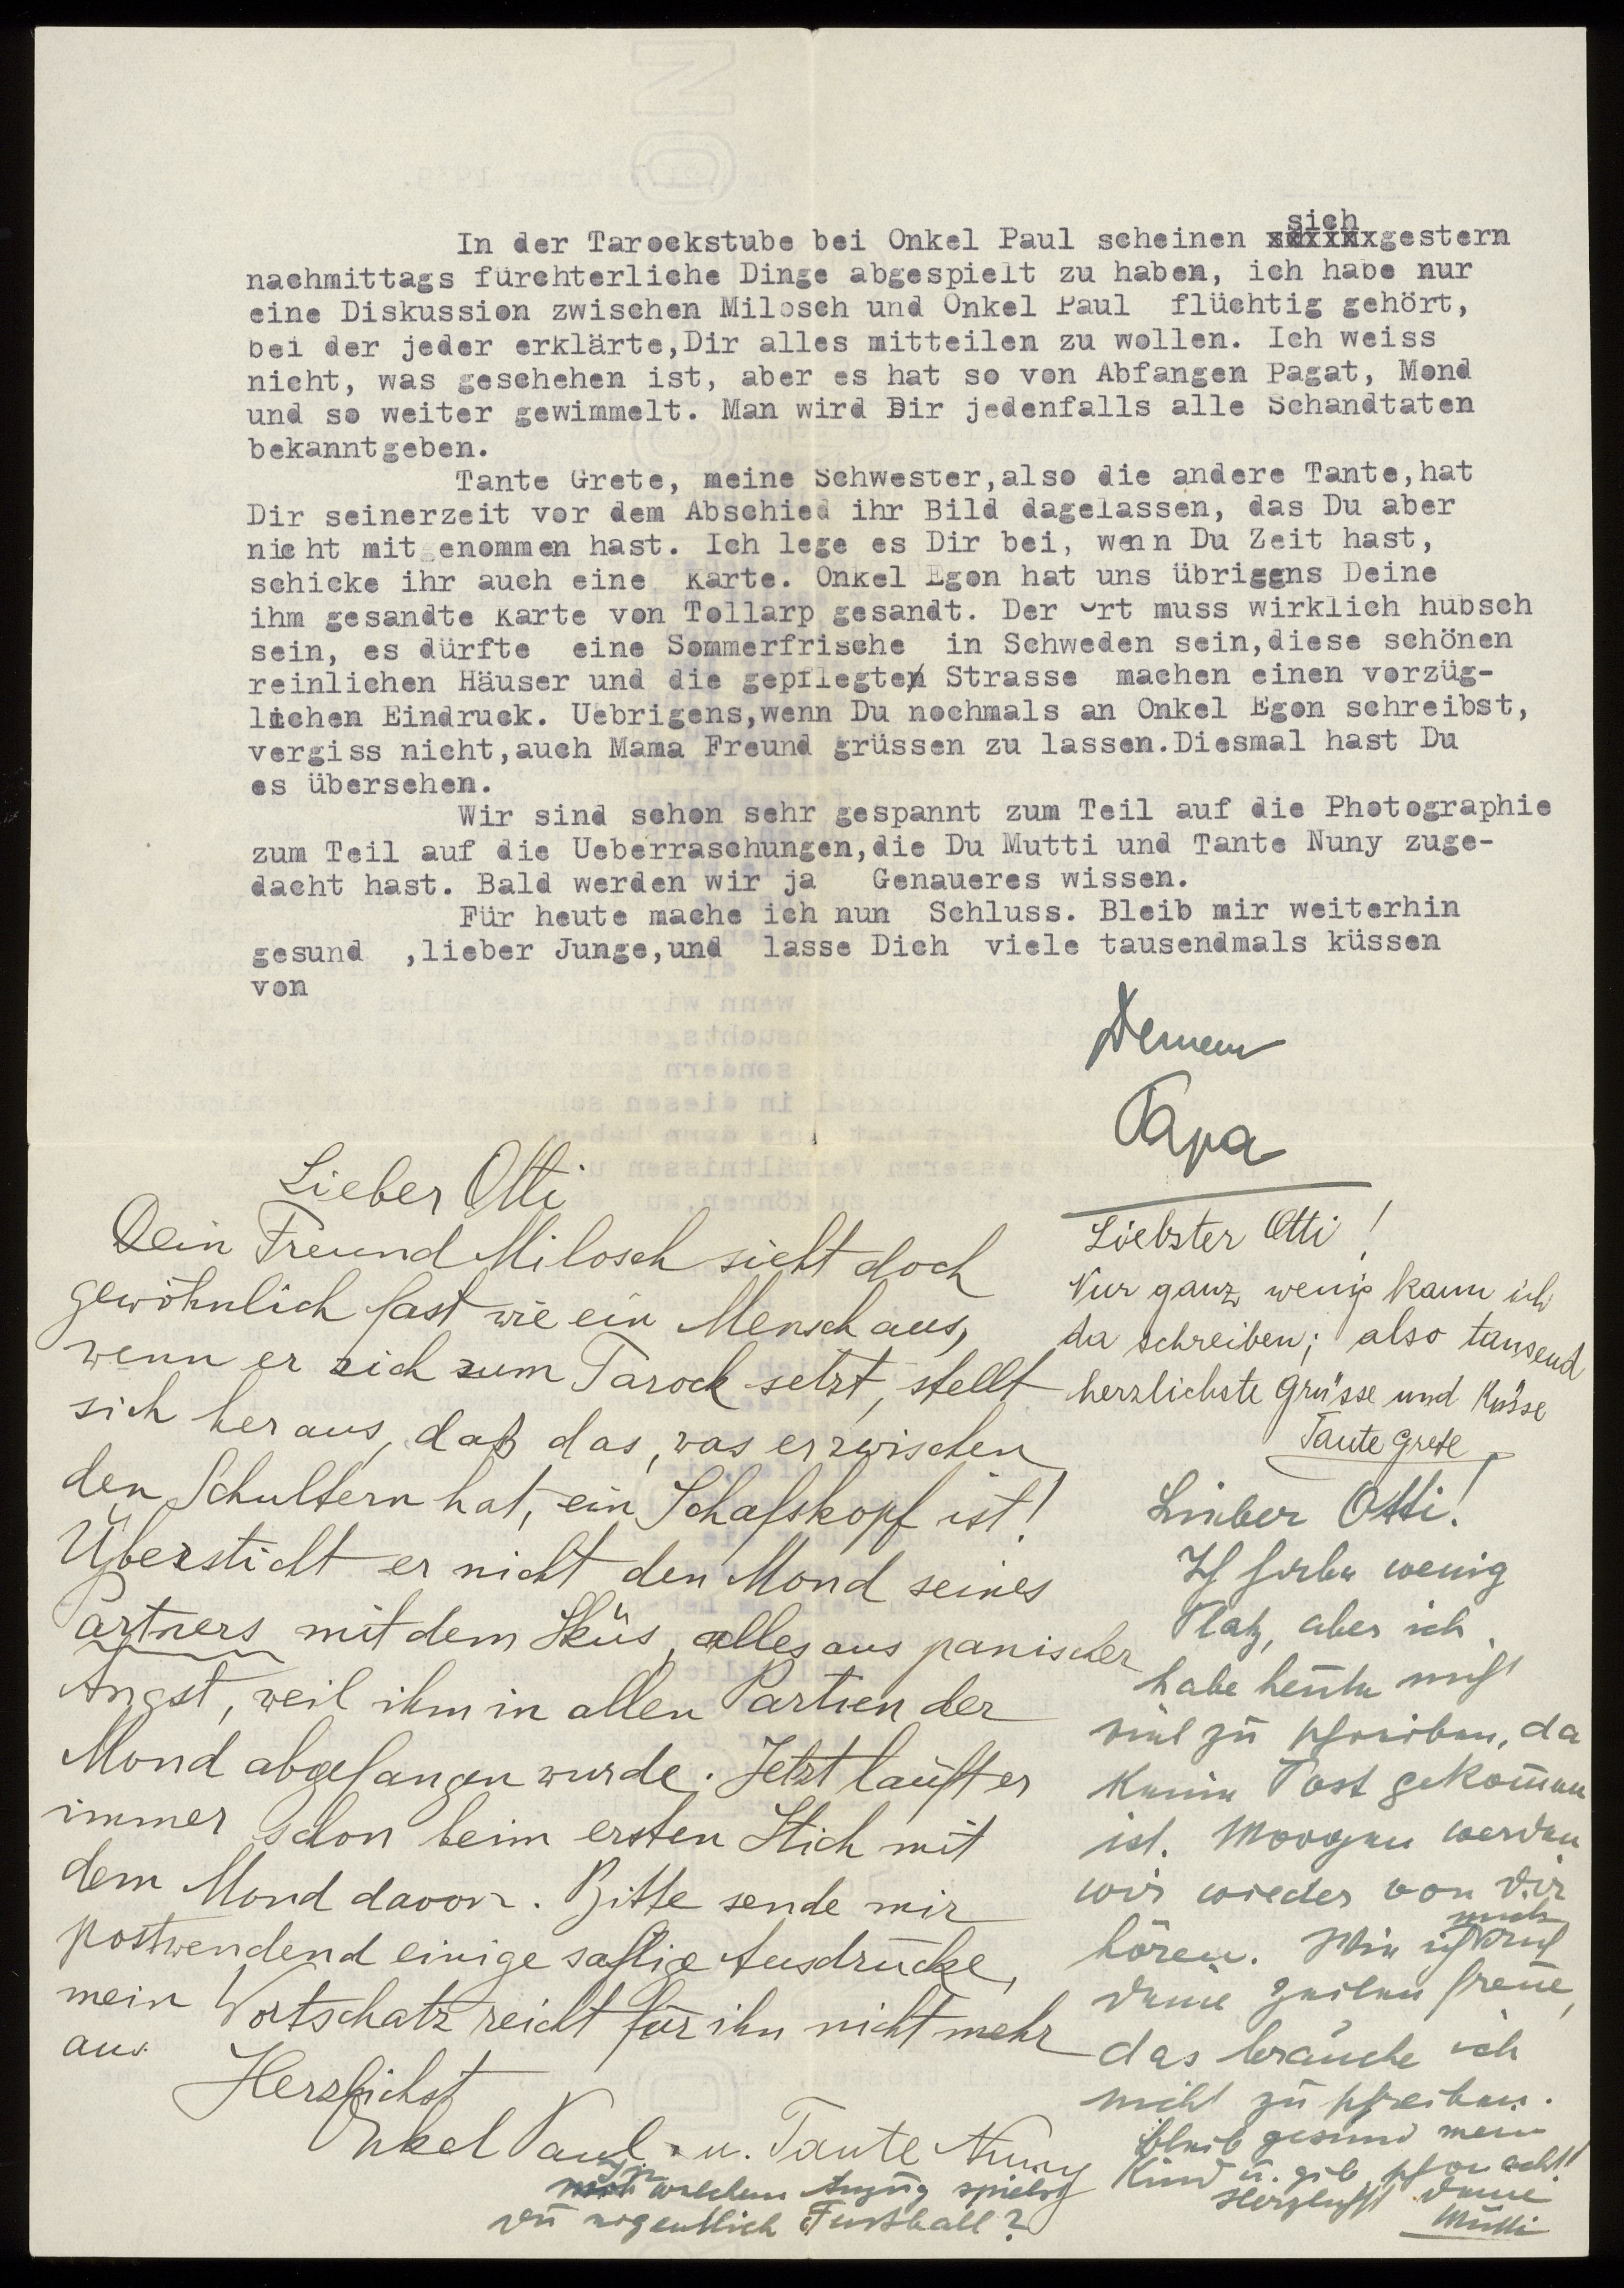 In der Tarockstube bei Onkel Paul scheinen sich gestern
nachmittags fürchterliche Dinge abgespielt zu haben, ich habe nur
eine Diskussion zwischen Milosch und Onkel Paul flüchtig gehört,
bei der jeder erklärte,Dir alles mitteilen zu wollen. Ich weiss
nicht, was geschehen ist, aber es hat so von Abfangen Pagat, Mond
und so weiter gewimmelt. Man wird Dir jedenfalls alle Schandtaten
bekanntgeben.
Tante Grete, meine Schwester,also die andere Tante,hat
Dir seinerzeit vor dem Abschied ihr Bild dagelassen, das Du aber
nicht mitgenommen hast. Ich lege es Dir bei, wenn Du Zeit hast,
schicke ihr auch eine Karte. Onkel Egon hat uns übriggns Deine
ihm gesandte Karte von Tollarp gesandt. Der Ort muss wirklich hübsch
sein, es dürfte eine Sommerfrische in Schweden sein,diese schönen
reinlichen Häuser und die gepflegte Strasse machen einen vorzüg-
lichen Eindruck. Uebrigens,wenn Du nochmals an Onkel Egon schreibst,
vergiss nicht,auch Mama Freund grüssen zu lassen.Diesmal hast Du
es übersehen.
Wir sind schon sehr gespannt zum Teil auf die Photographie
zum Teil auf die Ueberraschungen,die Du Mutti und Tante Nuny zuge-
dacht hast. Bald werden wir ja Genaueres wissen.
Für heute mache ich nun Schluss. Bleib mir weiterhin
gesund ,lieber Junge,und lasse Dich viele tausendmals küssen
von
Deinem
Papa
Lieber Otti
Dein Freund Milosch sieht doch
gewöhnlich fast wie ein Mensch aus,
wenn er sich zum Tarock setzt, stellt
sich heraus, daß das, was er zwischen
den Schultern hat, ein Schafskopf ist!
Übersticht er nicht den Mond seines
Partners mit dem Sküs, alles aus panischer
Angst, weil ihm in allen Partien der
Mond abgefangen wurde. Jetzt läuft er
immer schon beim ersten Stich mit
dem Mond davon. Bitte sende mir
postwendend einige saftige Ausdrücke,
mein Wortschatz reicht für ihn nicht mehr
aus.
Herzlichst
Onkel Paul u. Tante Nuny
Liebster Otti!
Nur ganz wenig kann ich
da schreiben; also tausend
herzlichste Grüsse und Küsse
Tante Grete
Lieber Otti!
Ich habe wenig
Platz, aber ich
habe heute nicht
viel zu schreiben, da
keine Post gekommen
ist. Morgen werden
wir wieder von Dir
hören. Wie ich mich auf
Deine Zeilen freue,
das brauche ich
nicht zu schreiben.
Bleib gesund mein
Kind u. gib schon acht!
Herzlichst Deine
Mutti
In welchem Anzug spielst
Du eigentlich Fussball?